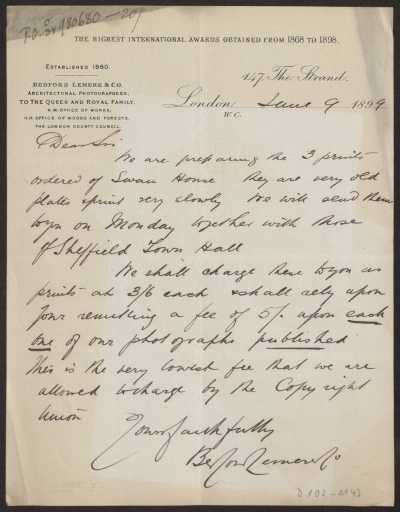 P.O. Sr 980680 - 20/
THE HIGHEST INTERNATIONAL AWARDS OBTAINED FROM 1868 TO 1898.
ESTABLISHED 1860.
BEDFORD LEMERE & CO.
ARCHITECTURAL PHOTOGRAPHERS,
TO THE QUEEN AND ROYAL FAMILY,
H.M. OFFICE OF WORKS,
H.M. OFFICE OF WOODS AND FORESTS,
THE LONDON COUNTY COUNCIL.
147, The Strand,
London, June 9 1899
W.C.
Dear Sir
We are preparing the 3 prints
ordered of Swan House They are very old
plates & print very slowly We will send them
to you on Monday together with those
of Sheffield Town Hall
We shall charge these to you as
prints at 3/6 each & shall rely upon
your remitting a fee of 5/- upon each
one of our photographs published
This is the very lowest fee that we are
allowed to charge by the Copyright
Union
Yours faithfully
Bedford Lemere & Co
D 102-